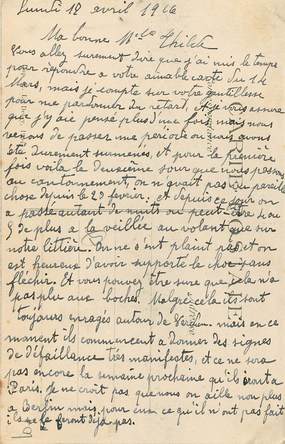 Lundi 18 avril 1916
Ma bonne Mlle Thilde
Vous allez surement dire que j'ai mis le temps
pour répondre a votre aimable carte du 14
Mars, mais je compte sur votre gentillesse
pour me pardonner du retart, et je vous assure
que j'y aie pensé plus d'une fois, mais nous
venons de passer une periode ou nous avons
été durement surmenés, et pour la première
fois voila le deuxième sour que nous passons
au cantonnement, on n'avait pas vu pareille
chose depuis le 29 février, et depuis ce jour on
a passé autant de nuits ou peut être 4 ou
5 de plus a la veillée au volant que sur
notre litière. Personne s'ont plaint pas et on
est heureux d'avoir supporté le choc sans
fléchir. Et vous pouvez être sure que cela n'a
pas plu aux boches. Malgré cela ils sont
toujours enragés autour de Verdun mais en ce
moment ils commencent a donner des signes
de défaillance très manifestes, et ce ne sera
pas encore la semaine prochaine qu'ils iront a
Paris. Je ne croit pas que nous on aille non plus
a Berlin mais pour eux ce qu'il n'ont pas fait
ils ne le feront déja pas.